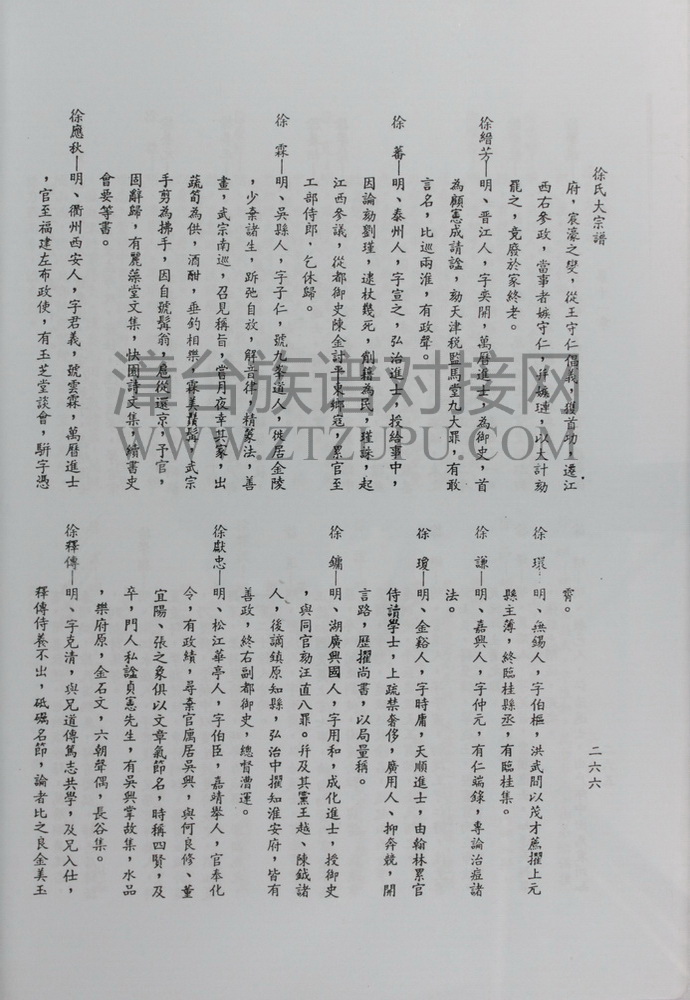 徐氏大宗譜
府，宸濠之變，從王守仁倡義，獲首功，遷江
西右參政，當事者嫉守仁，并嫉璉，以大計劾
罷之，竟廢於家終老。
徐縉芳—明、晉江人，字奕開，萬曆進士，為御史，首
為顧憲成請諡，劾天津稅監馬堂九大罪，有敢
言名，比巡兩淮，有政聲。
徐　蕃—明、泰州人，字宣之，弘治進士，授給事中，
因論劾劉瑾，逮杖幾死，削籍為民，瑾誅，起
江西參議，從都御史陳金討平東鄉寇，累官至
工部侍郎，乞休歸。
徐　霖—明、吳縣人，字子仁，號九峯道人，徙居金陵
，少棄諸生，跅弛自放，解音律，精篆法，善
畫，武宗南巡，召見稱旨，嘗月夜幸其家，出
蔬筍為供，酒酣，垂釣相樂，霖美鬚髯，武宗
手剪為拂手，因自號髯翁，扈從還京，予官，
固辭歸，有麗藻堂文集，快園詩文集，續書史
會要等書。
徐應秋—明、衢州西安人，字君義，號雲霖，萬曆進士
，官至福建左布政使，有玉芝堂談薈，駢字憑
霄。
徐　環—明、無錫人，字伯樞，洪武間以茂才薦擢上元
縣主薄，終臨桂縣丞，有臨桂集。
徐　謙—明、嘉興人，字仲元，有仁端錄，專論治痘諸
法。
徐　瓊—明、金谿人，字時庸，天順進士，由翰林累官
侍讀學士，上疏禁奢侈，廣用人、抑奔競，開
言路，歷擢尚書，以局量稱。
徐　鏞—明、湖廣興國人，字用和，成化進士，授御史
，與同官劾汪直八罪。幷及其黨王越、陳鉞諸
人，後謫鎮原知縣，弘治中擢知淮安府，皆有
善政，終右副都御史，總督漕運。
徐獻忠—明、松江華亭人，字伯臣，嘉靖舉人，官奉化
令，有政績，尋棄官寓居吳興，與何良修、董
宜陽、張之象俱以文章氣節名，時稱四賢，及
卒，門人私諡貞憲先生，有吳興掌故集，水品
，樂府原，金石文，六朝聲偶，長谷集。
徐釋傳—明、字克清，與兄道傳篤志共學，及兄入仕，
釋傳侍養不出，砥礪名節，論者比之良金美玉
二六六
漳台族谱对接网
WWW.ZTZUPU.COM